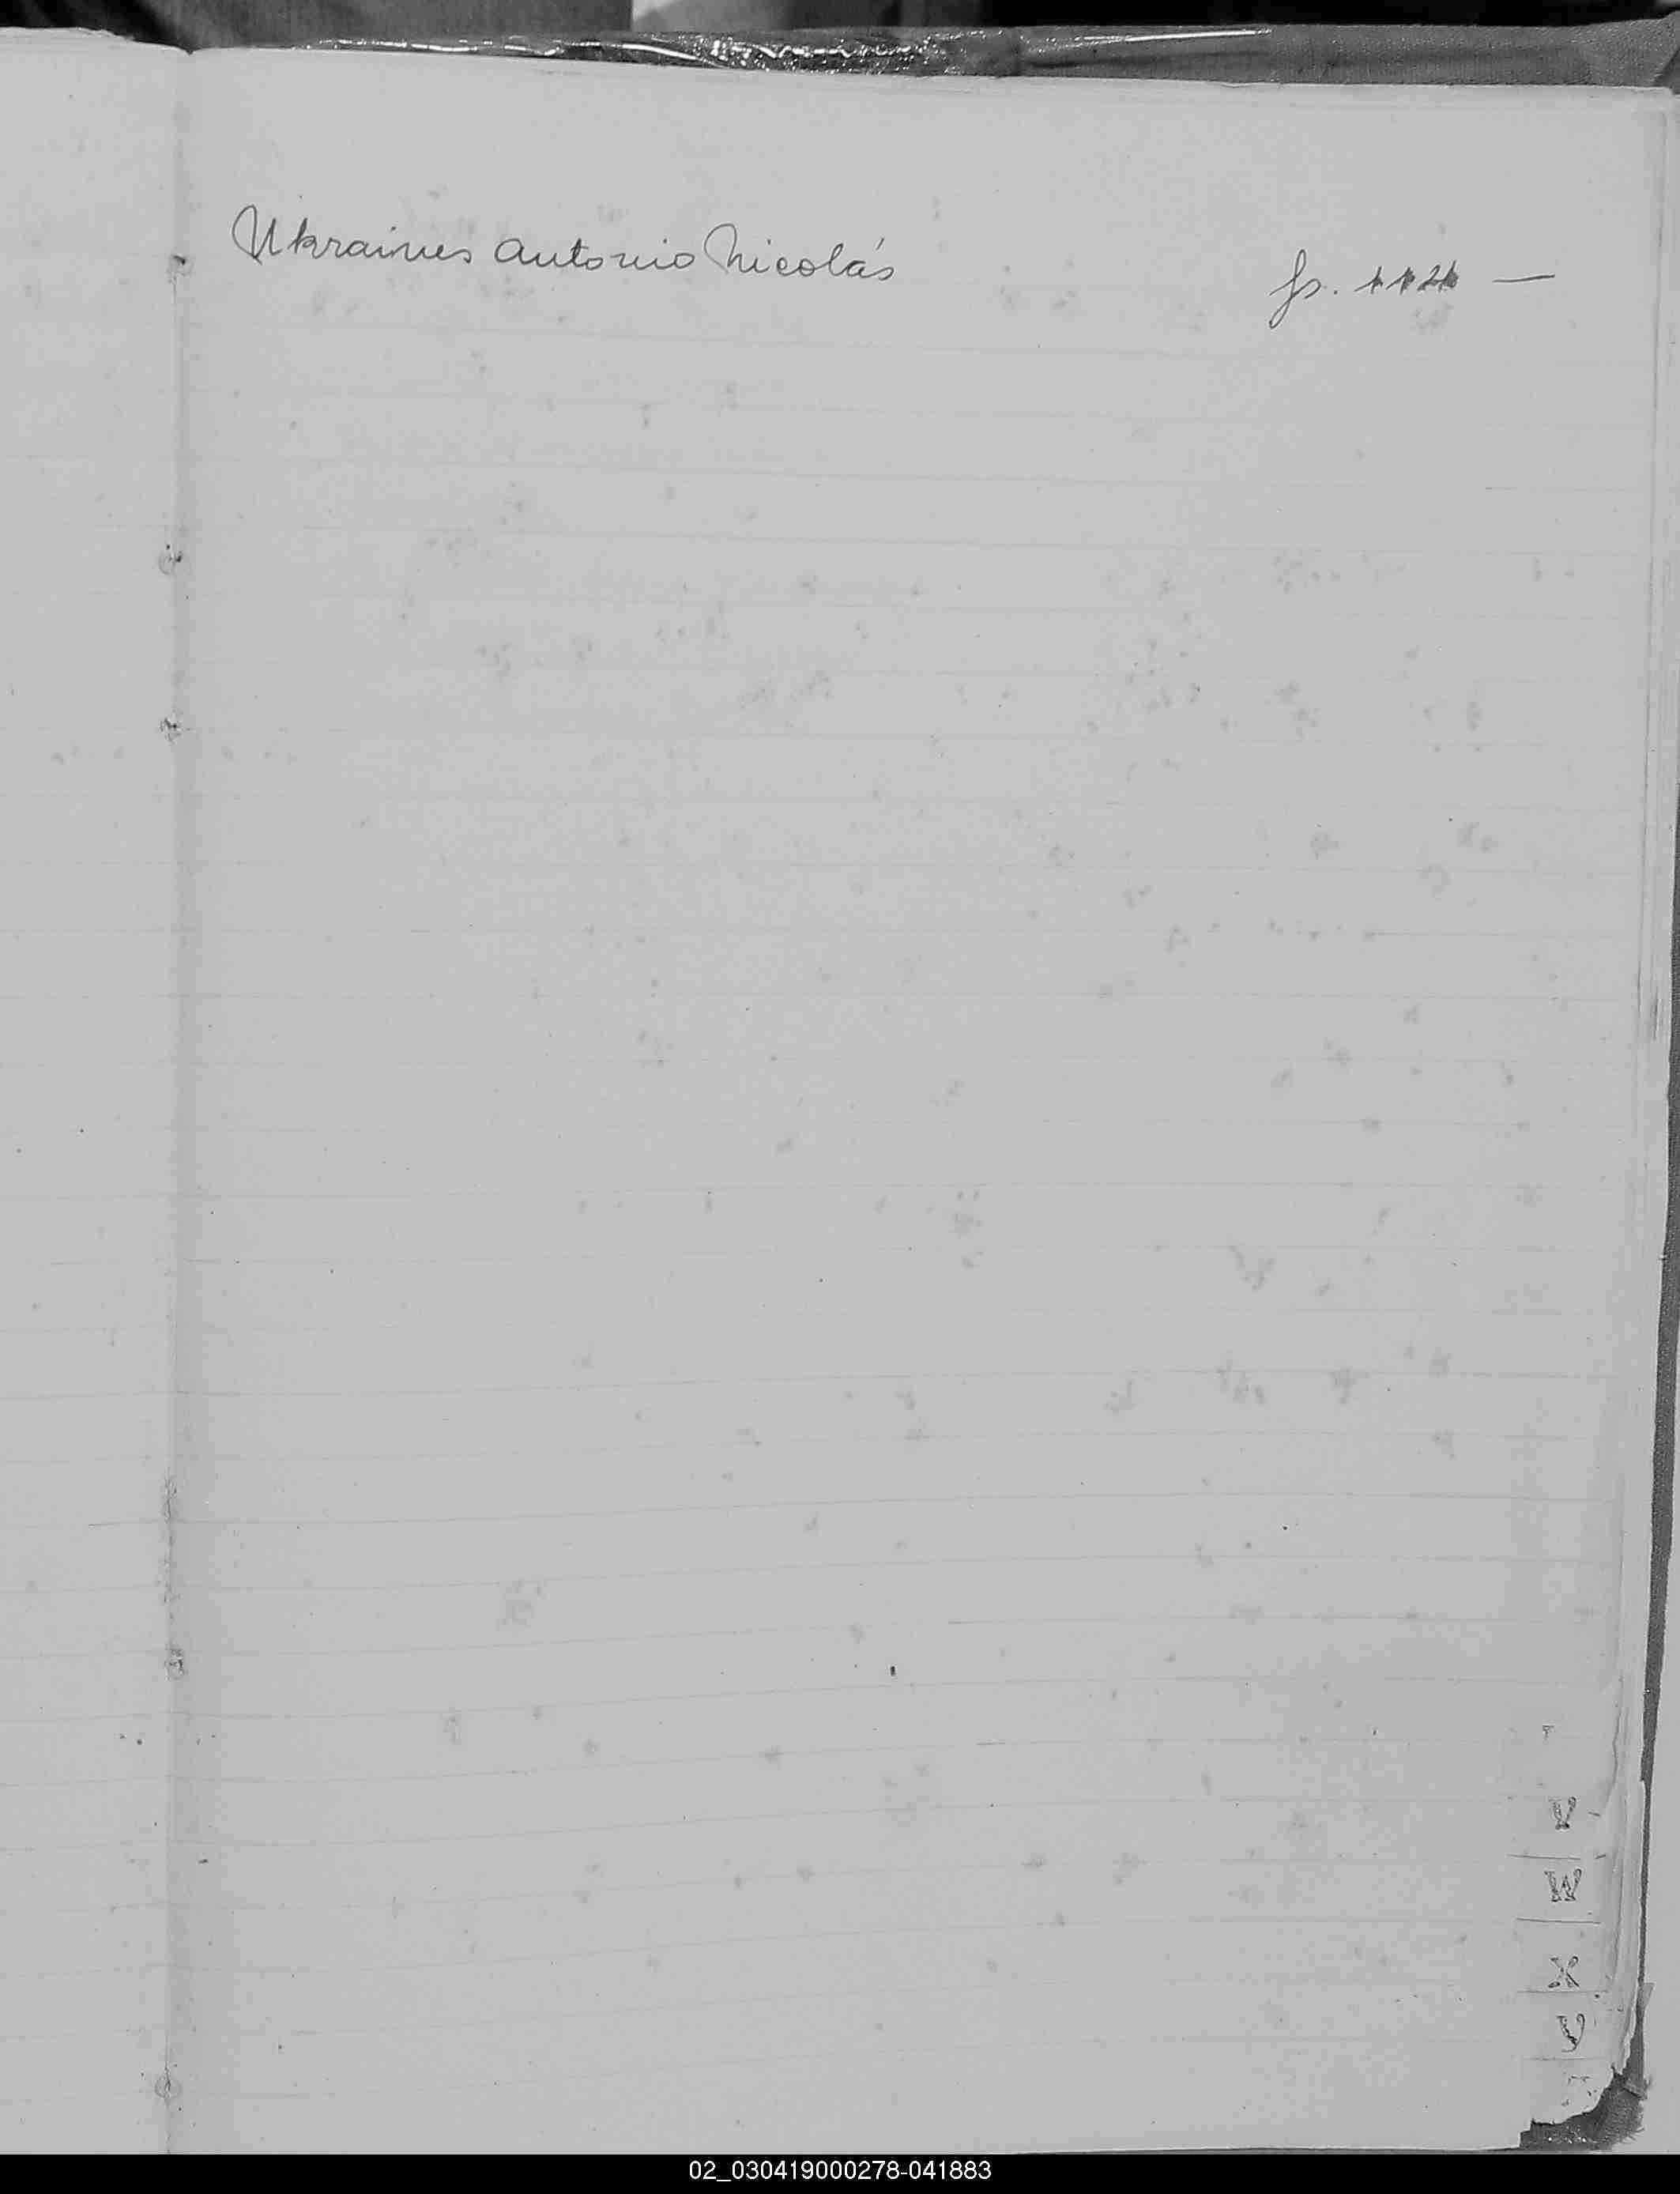 Ukraines Antonio Nicolás fs. 112 —
V
W
X
Y
02_030419000278-041883